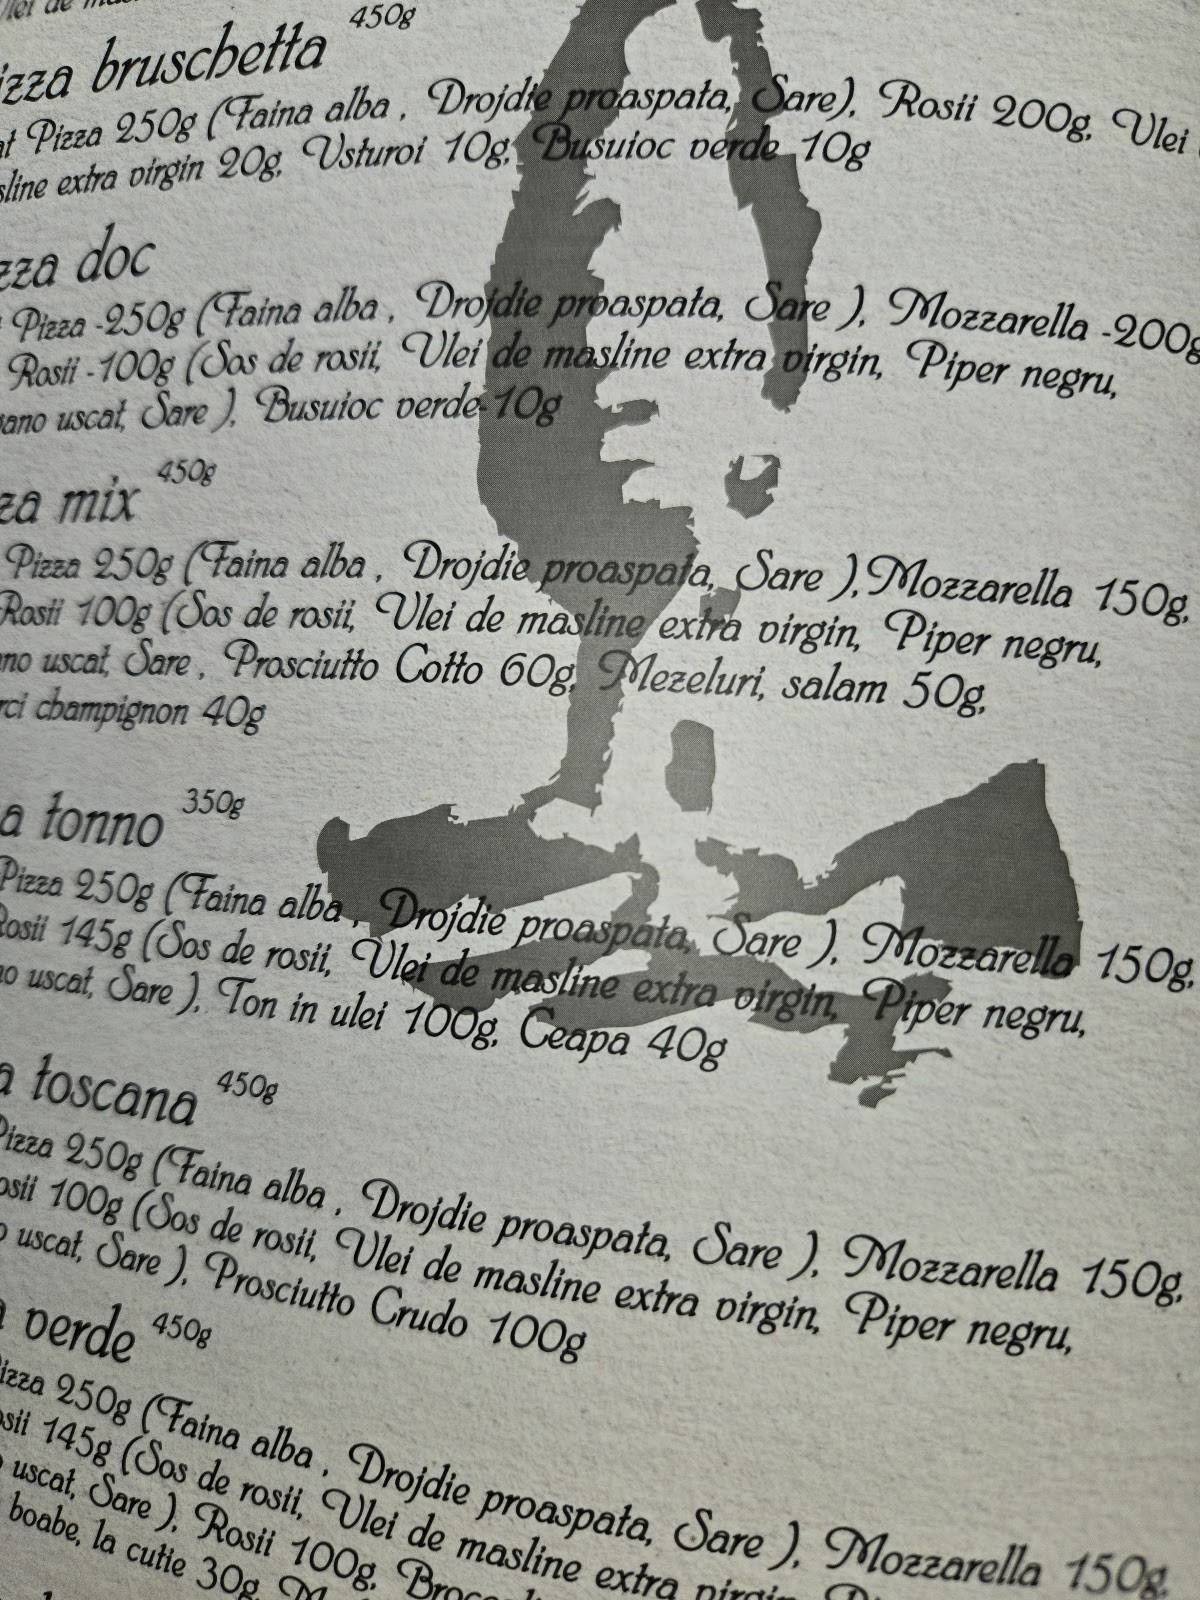 Ulei de mas
450g
izza bruschetta
at Pizza 250g (Faina alba , Drojdie proaspata, Sare), Rosii 200g, Ulei
sline extra virgin 20g, Usturoi 10g, Busuioc verde 10g
zza doc
Pizza -250g (Faina alba , Drojdie proaspata, Sare ), Mozzarella -200g
Rosii -100g (Sos de rosii, Ulei de masline extra virgin, Piper negru,
gano uscat, Sare ), Busuioc verde-10g
za mix 450g
Pizza 250g (Faina alba , Drojdie proaspata, Sare ),Mozzarella 150g,
Rosii 100g (Sos de rosii, Ulei de masline extra virgin, Piper negru,
ano uscat, Sare , Prosciutto Cotto 60g, Mezeluri, salam 50g,
rci champignon 40g
a tonno 350g
Pizza 250g (Faina alba , Drojdie proaspata, Sare ), Mozzarella 150g,
Rosii 145g (Sos de rosii, Ulei de masline extra virgin, Piper negru,
no uscat, Sare ), Ton in ulei 100g, Ceapa 40g
a toscana 450g
Pizza 250g (Faina alba , Drojdie proaspata, Sare ), Mozzarella 150g,
osii 100g (Sos de rosii, Ulei de masline extra virgin, Piper negru,
o uscat, Sare ), Prosciutto Crudo 100g
a verde 450g
izza 250g (Faina alba , Drojdie proaspata, Sare ), Mozzarella 150g,
osii 145g (Sos de rosii, Ulei de masline extra virgin
uscat, Sare ), Rosii 100g,
boabe, la cutie 30g,